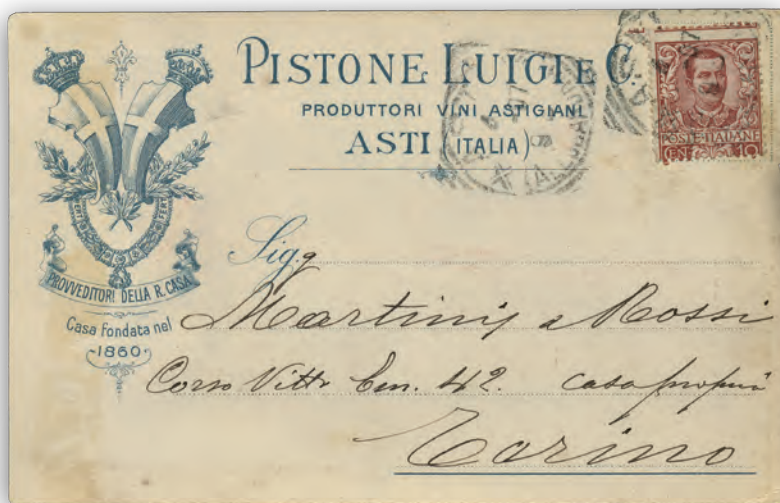 PISTONE LUIGI e C
PRODUTTORI VINI ASTIGIANI
ASTI (ITALIA)
POSTE ITALIANE
CEN. 10
FERT
FERT
Sigg
PROVVEDITORI DELLA R. CASA
Casa Fondata nel
1860
Martini e Rossi
Corso Vitt. Em. 42. casa propria
Torino